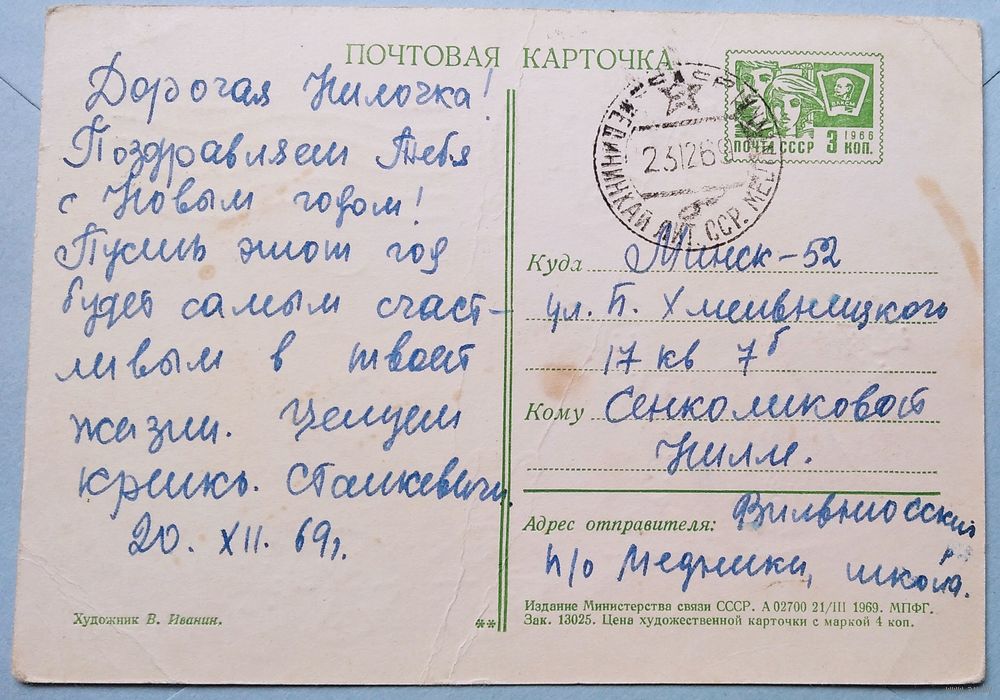 ПОЧТОВАЯ КАРТОЧКА
Дорогая Нилочка!
Поздравляем Тебя
с Новым годом!
Пусть этот год
будет самым счаст-
ливым в твоей
жизни. Целуем
крепко. Станкевичи.
20. XII. 69г.
Художник В. Иванин.
**
ВЛКСМ
1966
ПОЧТА СССР 3 КОП.
МЕДИНИНКАЙ ЛИТ. ССР.
231269
Куда Минск-52
ул. Б. Хмельницкого
17 кв 7б
Кому Сенколиковой
Нилле.
Адрес отправителя: Вильнюсский
р-н
п/о Медники, школа.
Издание Министерства связи СССР. А 02700 21/III 1969. МПФГ.
Зак. 13025. Цена художественной карточки с маркой 4 коп.